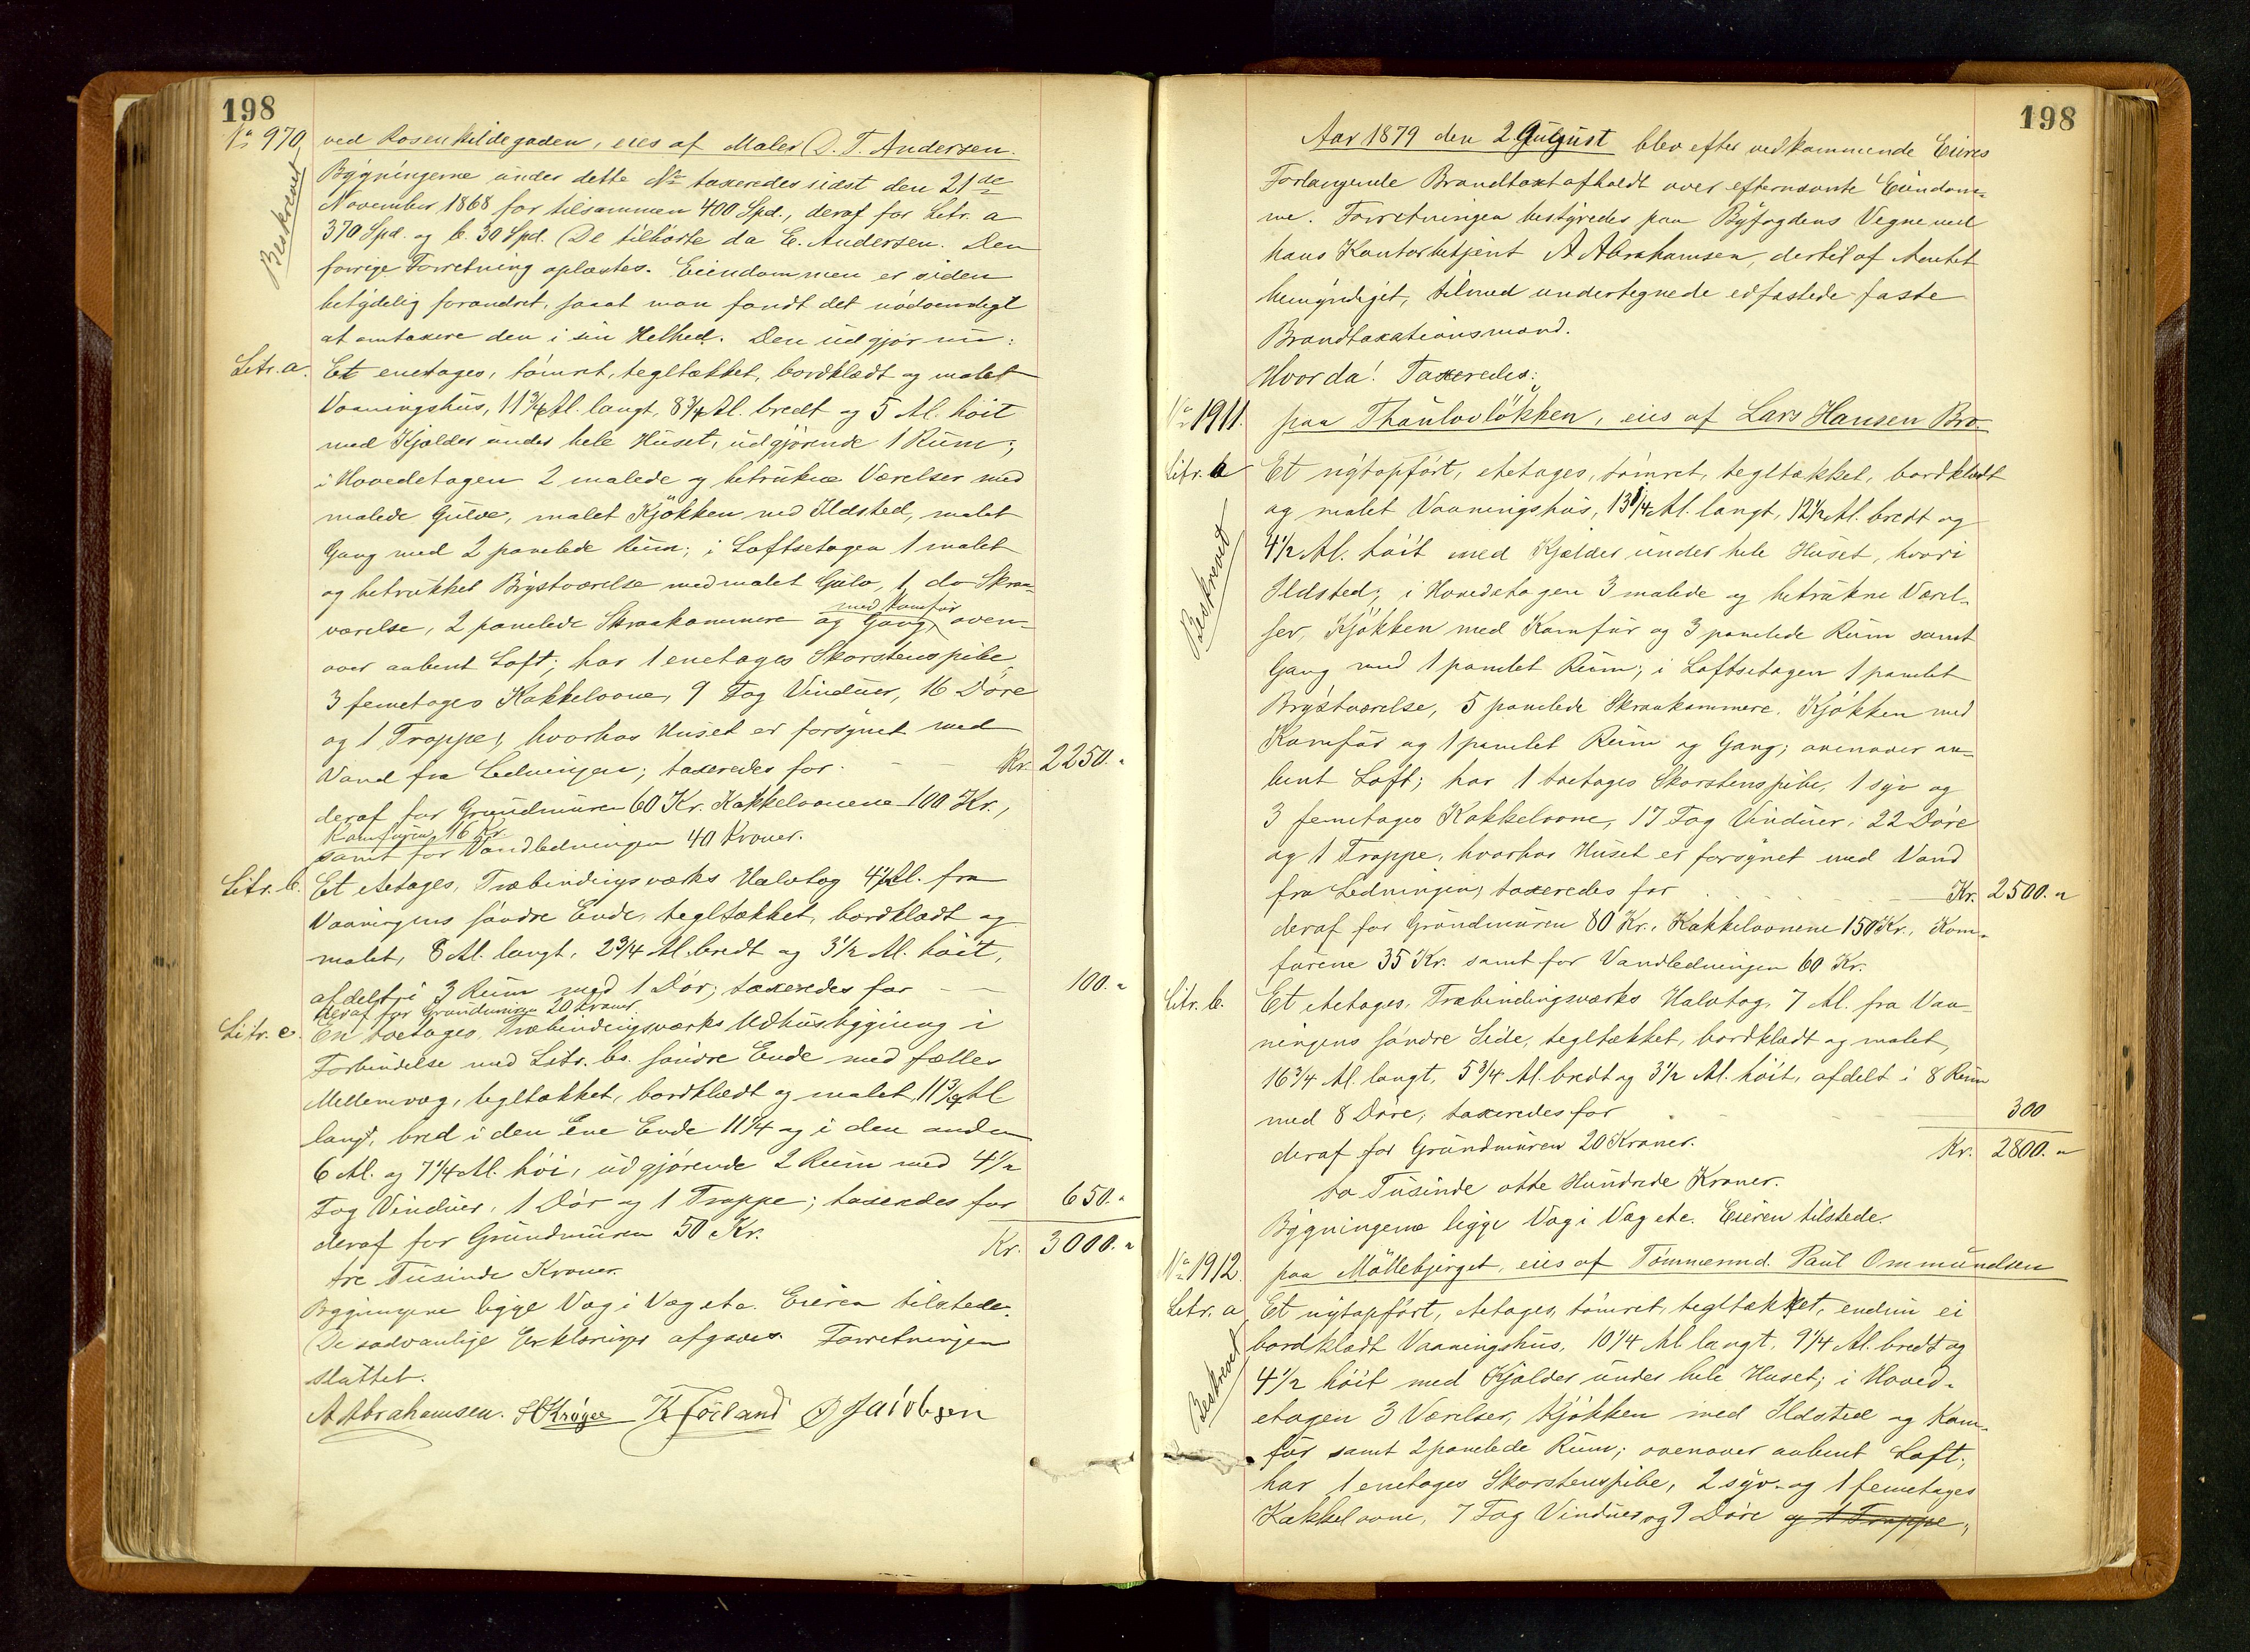 198
No 970 ved Rosenkildegaden, eies af Maler D. T. Andersen.
Beskrevet
Bygningerne under dette No taxeredes sidst den 21de
November 1868 for tilsammen 400 Spd., deraf for Litr. a
370 Spd. og b. 30 Spd. De tilhørte da E. Andersen. Den
forrige Forretning oplæstes. Eiendommen er siden
betydelig forandret, saaat man fandt det nödvendigt
at omtaxere den i sin Helhed. Den udgjør nu:
Litr. a. Et enetages, tömret, tegltækket, bordklædt og malet
Vaaningshus, 11 3/4 Al. langt, 8 3/4 Al. bredt og 5 Al. höit
med Kjælder under hele Huset, udgjørende 1 Rum;
i Hovedetagen 2 malede og betrukne Værelser med
malede Gulve, malet Kjökken med Ildsted, malet
Gang med 2 panelede Rum; i Loftsetagen 1 malet
og betrukket Brystværelse med malet Gulv, 1 do Skraa-
værelse, 2 panelede Skraakammere og Gang med Komfur, oven-
over aabent Loft; har 1 enetages Skorstenspibe,
3 femetages Kakkelovne, 9 Fag Vinduer, 16 Döre
og 1 Trappe, hvorhos Huset er forsynet med
Vand fra Ledningen; taxeredes for - - Kr. 2250. "
deraf for Grundmuren 60 Kr. Kakkelovnene 100 Kr.,
Komfuren 16 Kr.
samt for Vandledningen 40 Kroner.
Litr. b. Et etetages, Træbindingsværks Halvtag 4 1/2 Al. fra
Vaaningens söndre Ende, tegltækket, bordklædt og
malet, 8 Al. langt, 2 3/4 Al. bredt og 3 1/2 Al. höit,
afdelt i 3 Rum med 1 Dör; taxeredes for - - 100. "
deraf for Grundmuren 20 Kroner
Litr. c. En toetages, Træbindingsværks Udhusbygning i
Forbindelse med Litr. bs. söndre Ende med fælles
Mellemvæg, tegltækket, bordklædt og malet, 11 3/4 Al.
langt, bred i den Ene Ende 11 1/4 og i den anden
6 Al. og 7 1/4 Al. höi, udgjørende 2 Rum med 4 1/2
Fag Vinduer, 1 Dör og 1 Trappe; taxeredes for 650. "
deraf for Grundmuren 50 Kr. Kr. 3000. "
tre Tusinde Kroner.
Bygningerne ligge Væg i Væg etc. Eieren tilstede.
De sædvanlige Erklæringer afgaves. Forretningen
sluttet.
A Abrahamsen. Krøger K Förland Jacobsen
198
Aar 1879 den 2 August blev efter vedkommende Eieres
Forlangende Brandtaxt afholdt over efternævnte Eiendom-
me. Forretningen bestyredes paa Byfogdens Vegne ved
hans Kontorbetjent A Abrahamsen, dertil af Amtet
bemyndiget, tilmed undertegnede edfæstede faste
Brandtaxationsmænd.
Hvorda! Taxeredes:
No 1911. paa Thaulovløkken, eies af Lars Hansen Bro.
Litr. a Et nytopfört, etetages, tömret, tegltækket, bordklædt
Beskrevet
og malet Vaaningshus, 13 1/4 Al. langt, 12 1/2 Al. bredt og
4 1/2 Al. höit med Kjælder under hele Huset, hvori
Ildsted; i Hovedetagen 3 malede og betrukne Værel-
ser, Kjökken med Komfur og 3 panelede Rum samt
Gang med 1 panelet Rum; i Loftsetagen 1 panelet
Brystværelse, 5 panelede Skraakammere. Kjökken med
Komfur og 1 panelet Rum og Gang; ovenover aa-
bent Loft; har 1 toetages Skorstenspibe, 1 syv og
3 femetages Kakkelovne, 17 Fag Vinduer, 22 Döre
og 1 Trappe, hvorhos Huset er forsynet med Vand
fra Ledningen; taxeredes for - - Kr. 2500. "
deraf for Grundmuren 80 Kr., Kakkelovnene 150 Kr., Kom-
furene 35 Kr. samt for Vandledningen 60 Kr.
Litr. b. Et etetages, Træbindingsværks Halvtag, 7 Al. fra Vaa-
ningens söndre Side, tegltækket, bordklædt og malet,
16 3/4 Al. langt, 5 3/4 Al. bredt og 3 1/2 Al. höit, afdelt i 8 Rum
med 8 Döre; taxeredes for - - 300
deraf for Grundmuren 20 Kroner. Kr. 2800. "
to Tusinde otte Hundrede Kroner.
Bygningerne ligge Væg i Væg etc. Eieren tilstede.
No 1912. paa Möllebjerget, eies af Tömmermd. Paul Ommundsen
Litr. a Et nytopfört, etetages, tömret, tegltækket, endnu ei
Beskrevet
bordklædt Vaaningshus, 10 1/4 Al. langt, 9 1/4 Al. bredt og
4 1/2 höit med Kjælder under hele Huset; i Hoved-
etagen 3 Værelser, Kjökken med Ildsted og Kom-
fur samt 2 panelede Rum; ovenover aabent Loft;
har 1 enetages Skorstenspibe, 2 syv- og 1 femetages
Kakkelovne, 7 Fag Vinduer og 9 Döre og 1 Trappe,